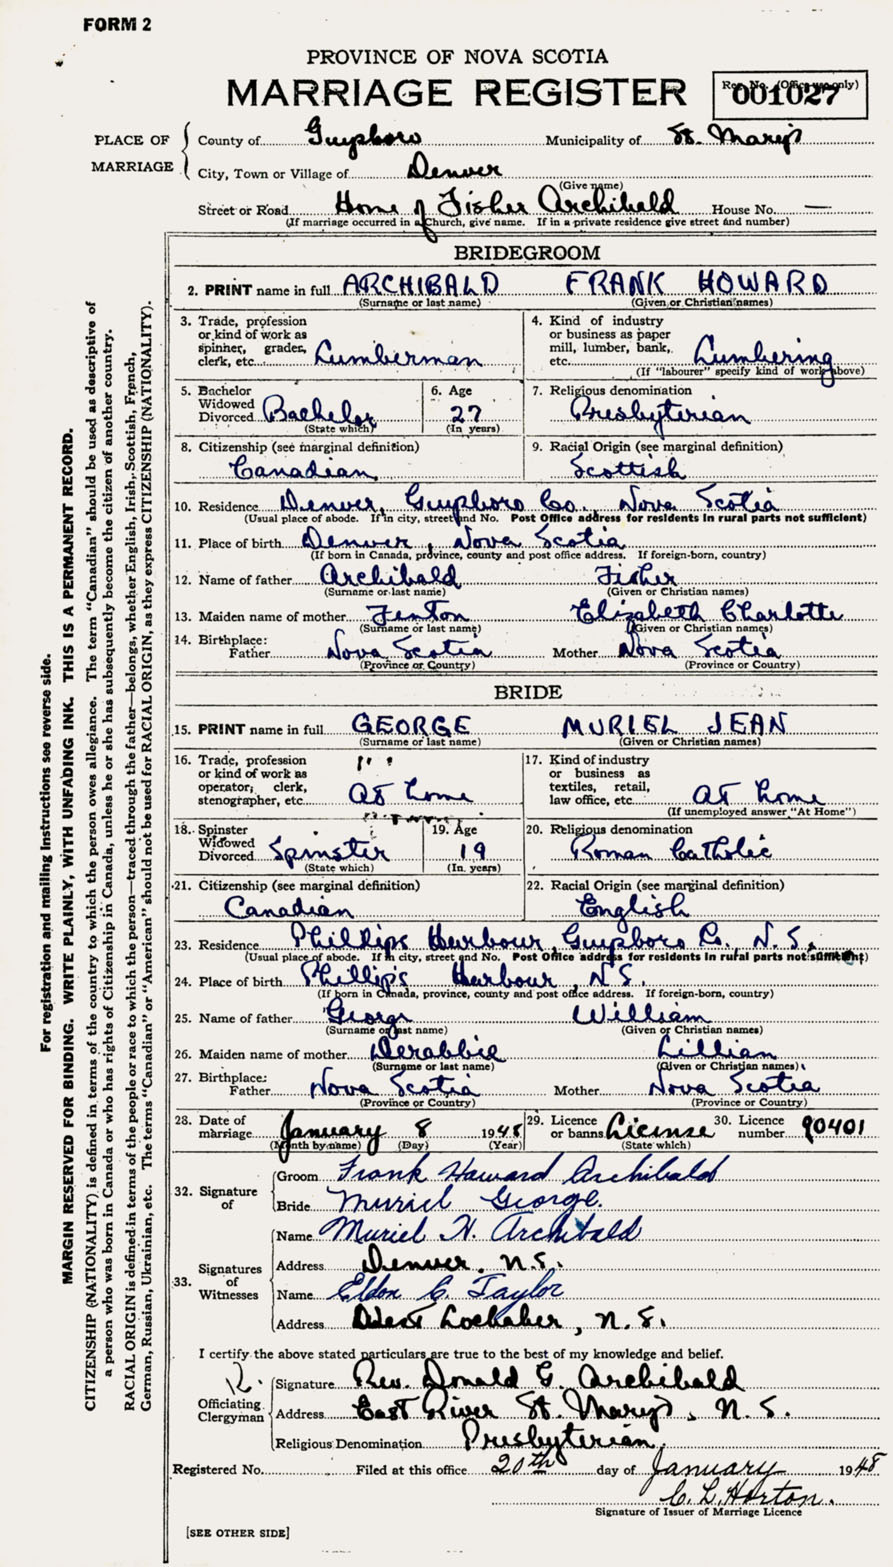 FORM 2
PROVINCE OF NOVA SCOTIA
MARRIAGE REGISTER
Reg. No. (Office use only)
001027
PLACE OF MARRIAGE
County of Guysboro Municipality of St. Mary's
City, Town or Village of Denver
(Give name)
Street or Road Home of Fisher Archibald House No. —
(If marriage occurred in a Church, give name. If in a private residence give street and number)
BRIDEGROOM
2. PRINT name in full ARCHIBALD FRANK HOWARD
(Surname or last name) (Given or Christian names)
3. Trade, profession or kind of work as spinner, grader, clerk, etc. Lumberman
4. Kind of industry or business as paper mill, lumber, bank, etc. Lumbering
(If "labourer" specify kind of work above)
5. Bachelor Widowed Divorced Bachelor
(State which)
6. Age 27
(In years)
7. Religious denomination
Presbyterian
8. Citizenship (see marginal definition)
Canadian
9. Racial Origin (see marginal definition)
Scottish
10. Residence Denver, Guysboro Co., Nova Scotia
(Usual place of abode. If in city, street and No. Post Office address for residents in rural parts not sufficient)
11. Place of birth Denver, Nova Scotia
(If born in Canada, province, county and post office address. If foreign-born, country)
12. Name of father Archibald Fisher
(Surname or last name) (Given or Christian names)
13. Maiden name of mother Fenton Elizabeth Charlotte
(Surname or last name) (Given or Christian names)
14. Birthplace:
Father Nova Scotia Mother Nova Scotia
(Province or Country) (Province or Country)
BRIDE
15. PRINT name in full GEORGE MURIEL JEAN
(Surname or last name) (Given or Christian names)
16. Trade, profession or kind of work as operator, clerk, stenographer, etc. At home
17. Kind of industry or business as textiles, retail, law office, etc. At home
(If unemployed answer "At Home")
18. Spinster Widowed Divorced Spinster
(State which)
19. Age 19
(In years)
20. Religious denomination
Roman Catholic
21. Citizenship (see marginal definition)
Canadian
22. Racial Origin (see marginal definition)
English
23. Residence Phillips Harbour, Guysboro Co. N.S.
(Usual place of abode. If in city, street and No. Post Office address for residents in rural parts not sufficient)
24. Place of birth Phillip's Harbour, N.S.
(If born in Canada, province, county and post office address. If foreign-born, country)
25. Name of father George William
(Surname or last name) (Given or Christian names)
26. Maiden name of mother Derabbie Lillian
(Surname or last name) (Given or Christian names)
27. Birthplace:
Father Nova Scotia Mother Nova Scotia
(Province or Country) (Province or Country)
28. Date of marriage January 8 1948
(Month by name) (Day) (Year)
29. Licence or banns License
(State which)
30. Licence number 90401
32. Signature of
Groom Frank Howard Archibald
Bride Muriel George.
33. Signatures of Witnesses
Name Muriel H. Archibald
Address Denver, N.S.
Name Eldon C. Taylor
Address West Lochaber, N.S.
I certify the above stated particulars are true to the best of my knowledge and belief.
Officiating Clergyman
Signature Rev. Donald G. Archibald
Address East River St. Mary's, N.S.
Religious Denomination Presbyterian
Registered No. Filed at this office 20th day of January 1948
C. L. Horton.
Signature of Issuer of Marriage Licence
[SEE OTHER SIDE]
For registration and mailing instructions see reverse side.
MARGIN RESERVED FOR BINDING. WRITE PLAINLY, WITH UNFADING INK. THIS IS A PERMANENT RECORD.
CITIZENSHIP (NATIONALITY) is defined in terms of the country to which the person owes allegiance. The term "Canadian" should be used as descriptive of
a person who was born in Canada or who has rights of Citizenship in Canada, unless he or she has subsequently become the citizen of another country.
RACIAL ORIGIN is defined in terms of the people or race to which the person—traced through the father—belongs, whether English, Irish, Scottish, French,
German, Russian, Ukrainian, etc. The terms "Canadian" or "American" should not be used for RACIAL ORIGIN, as they express CITIZENSHIP (NATIONALITY).